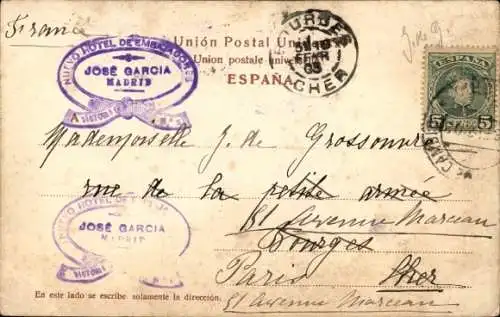 France
Unión Postal Universal
Union postale universelle
ESPAÑA
NUEVO HOTEL DE EMBAJADORES
JOSÉ GARCIA
MADRID
VICTORIA
BOURGES
03
CHER
J. de G
ESPAÑA
5
5
Mademoiselle J. de Grossouvre
rue de la petite armée
51 Avenue Marceau
Bourges
Paris Cher
51 Avenue Marceau
NUEVO HOTEL DE
JOSÉ GARCIA
MADRID
VICTORIA
En este lado se escribe solamente la dirección.